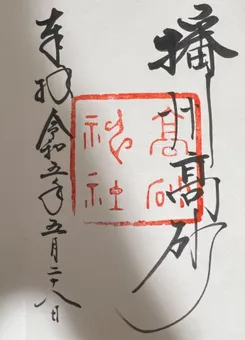 播州髙砂
髙砂
神社
奉拝 令和五年五月二十八日